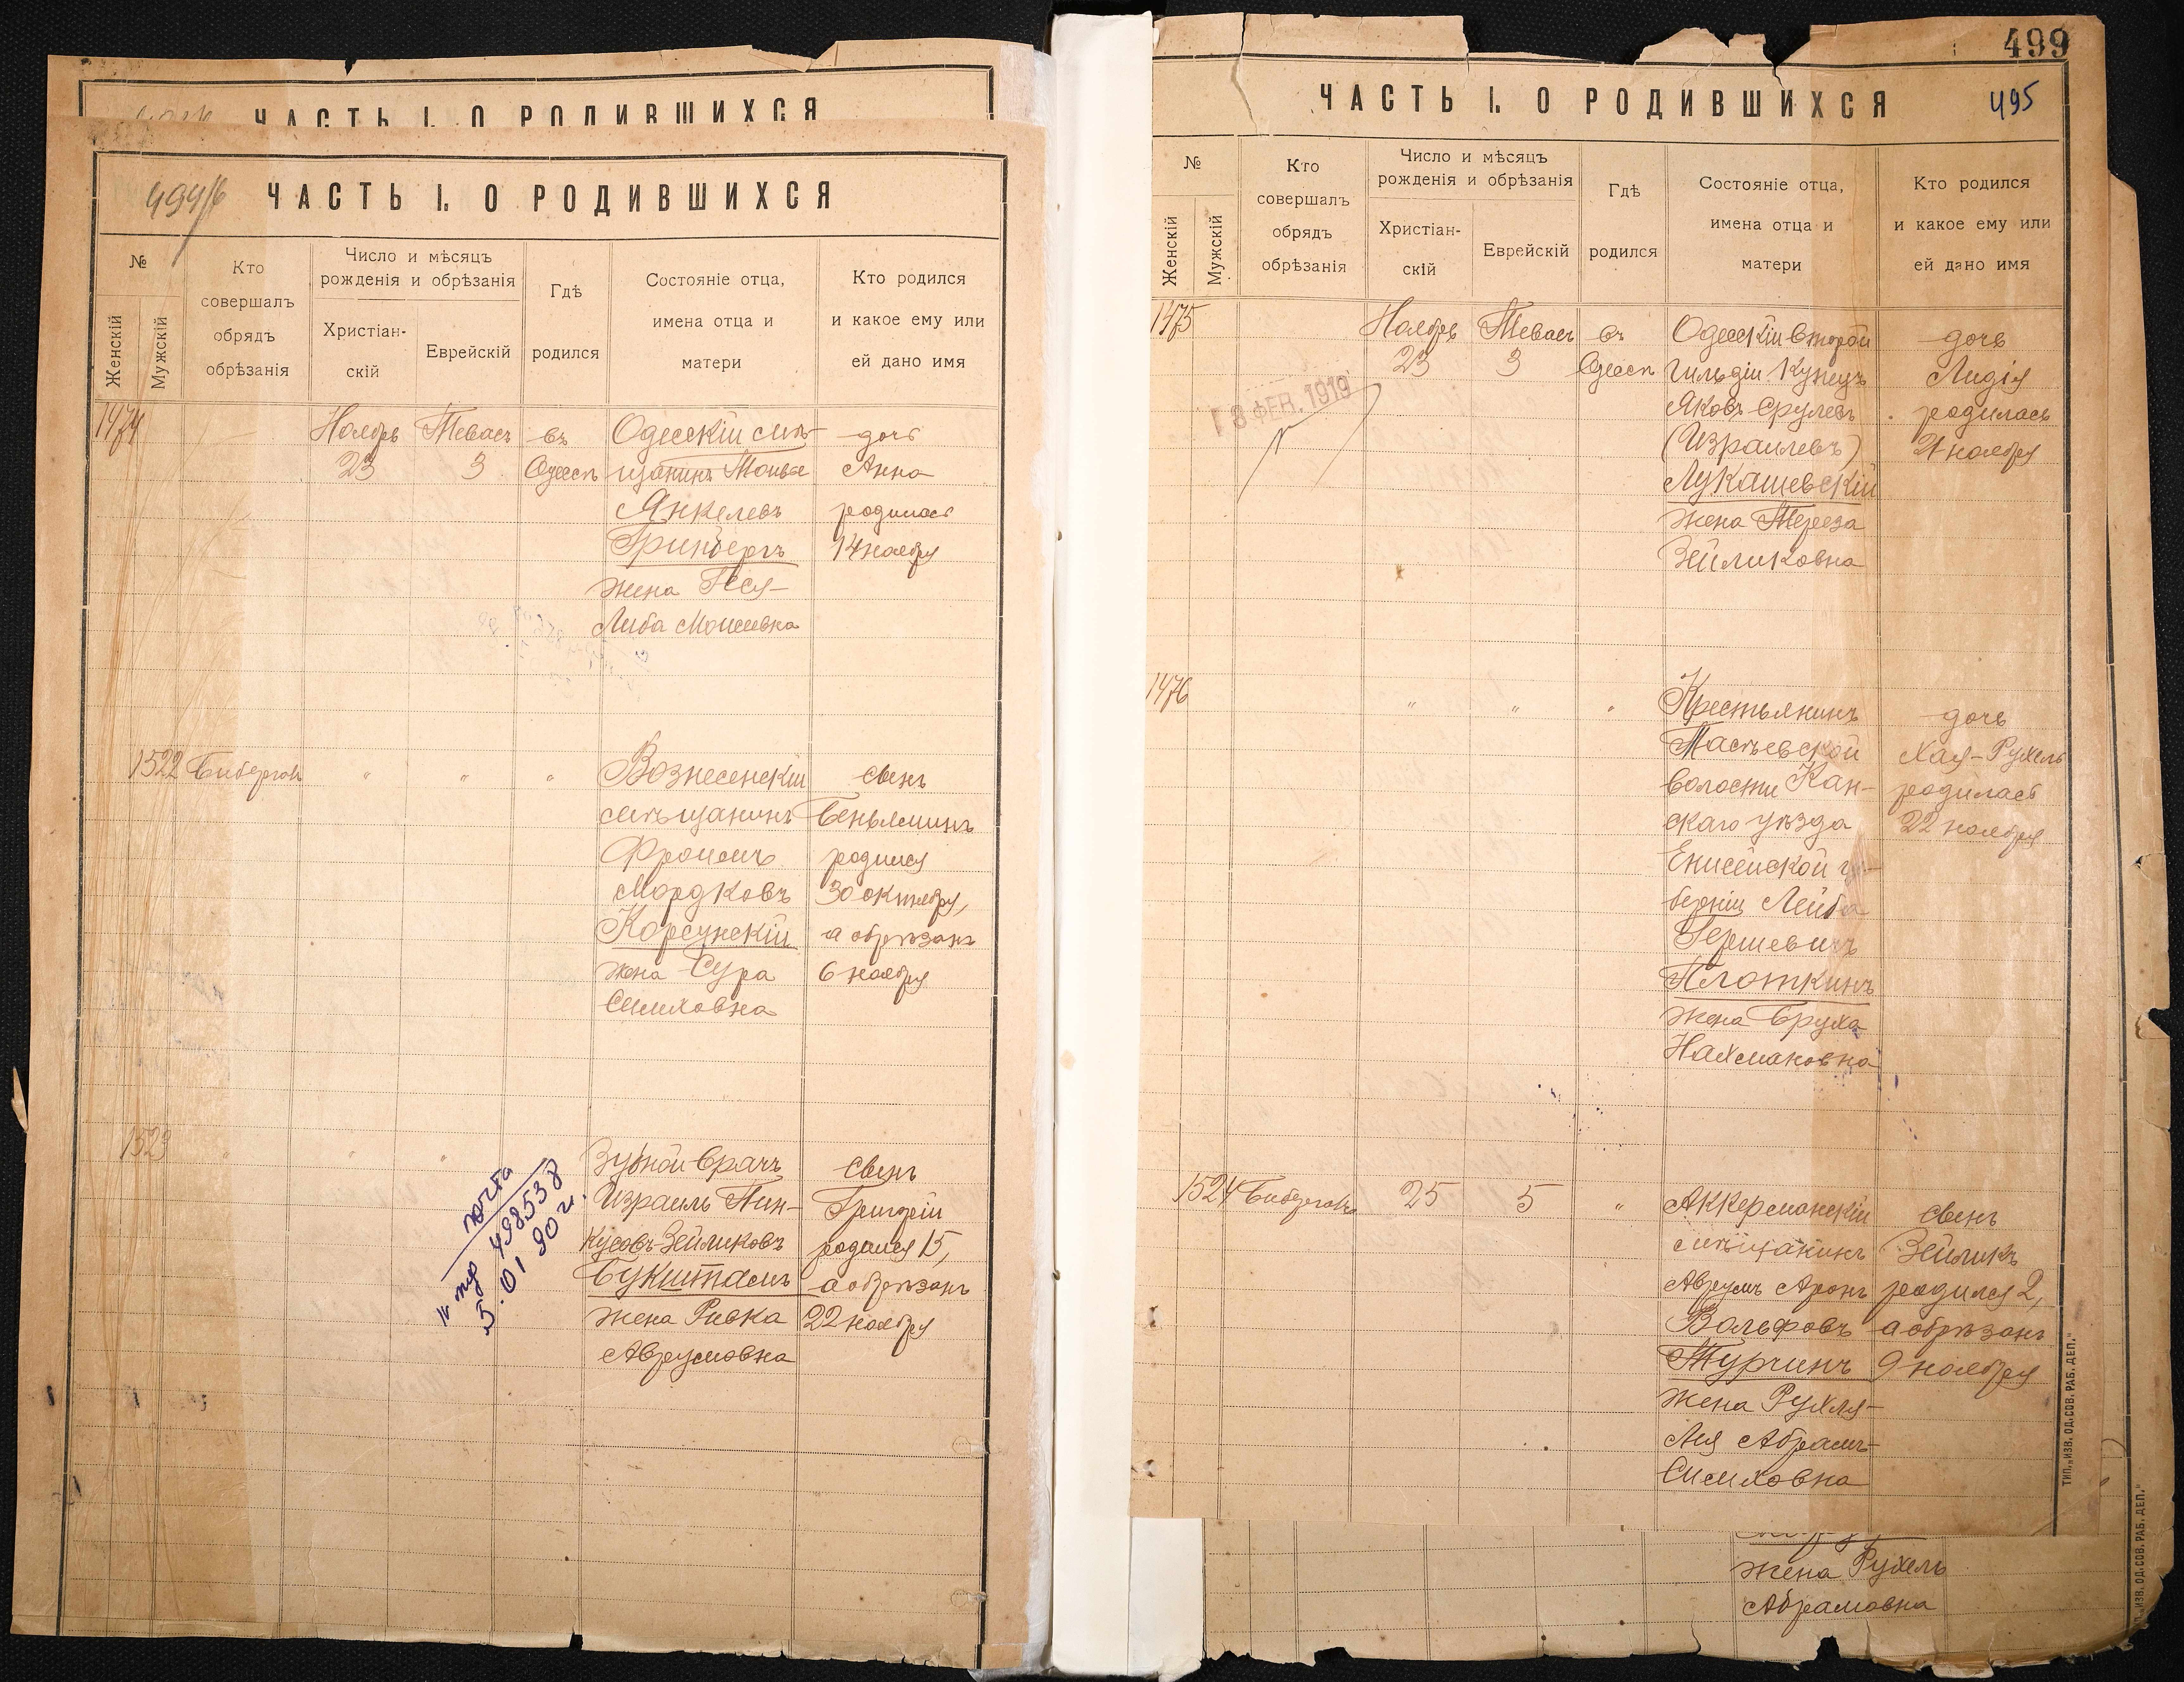 ЧАСТЬ I. О РОДИВШИХСЯ
494/б
ЧАСТЬ I. О РОДИВШИХСЯ
№
Женскій
Мужскій
Кто
совершалъ
обрядъ
обрѣзанія
Число и мѣсяцъ
рожденія и обрѣзанія
Христіан-
скій
Еврейскій
Гдѣ
родился
Состояніе отца,
имена отца и
матери
Кто родился
и какое ему или
ей дано имя
1474
Ноябрь
23
Тевасъ
3
въ
Одессѣ
Одесскій мѣ-
щанинъ Мовше
Янкелевъ
Гринбергъ
жена Песя-
Либа Моисеевна
дочь
Анна
родилась
14 ноября
1522
Бибергон
"
"
"
Вознесенскій
мѣщанинъ
Фроимъ
Мордковъ
Корсунскій
жена Сура
Симховна
сынъ
Беньяминъ
родился
30 октября,
а обрѣзанъ
6 ноября
1523
"
"
"
Зубной врачъ
Израиль Пин-
кусовъ-Зейликовъ
Букштамъ
жена Ривка
Аврумовна
сынъ
Григорій
родился 15,
а обрѣзанъ
22 ноября
почта
498538
5.01 90 г.
499
ЧАСТЬ I. О РОДИВШИХСЯ
495
№
Женскій
Мужскій
Кто
совершалъ
обрядъ
обрѣзанія
Число и мѣсяцъ
рожденія и обрѣзанія
Христіан-
скій
Еврейскій
Гдѣ
родился
Состояніе отца,
имена отца и
матери
Кто родился
и какое ему или
ей дано имя
1475
18 ФЕВ. 1919
Ноябрь
23
Тевасъ
3
въ
Одессѣ
Одесскій второй
гильдіи купецъ
Яковъ Срулевъ
(Израилевъ)
Лукашевскій
жена Тереза
Зейликовна
дочь
Лидія
родилась
21 ноября
1476
"
"
"
Крестьянинъ
Тасѣевской
волости Кан-
скаго уѣзда
Енисейской гу-
берніи Лейба
Гершевичъ
Плоткинъ
жена Бруха
Нахмановна
дочь
Хая-Рухель
родилась
22 ноября
1524
Бибергон
25
5
"
Аккерманскій
мѣщанинъ
Аврумъ Аронъ
Вольфовъ
Турчинъ
жена Рухля-
Лея Абрамъ-
Симховна
сынъ
Зейликъ
родился 2,
а обрѣзанъ
9 ноября
ТИП. „ИЗВ. ОД. СОВ. РАБ. ДЕП."
жена Рухель
Абрамовна
„ИЗВ. ОД. СОВ. РАБ. ДЕП."